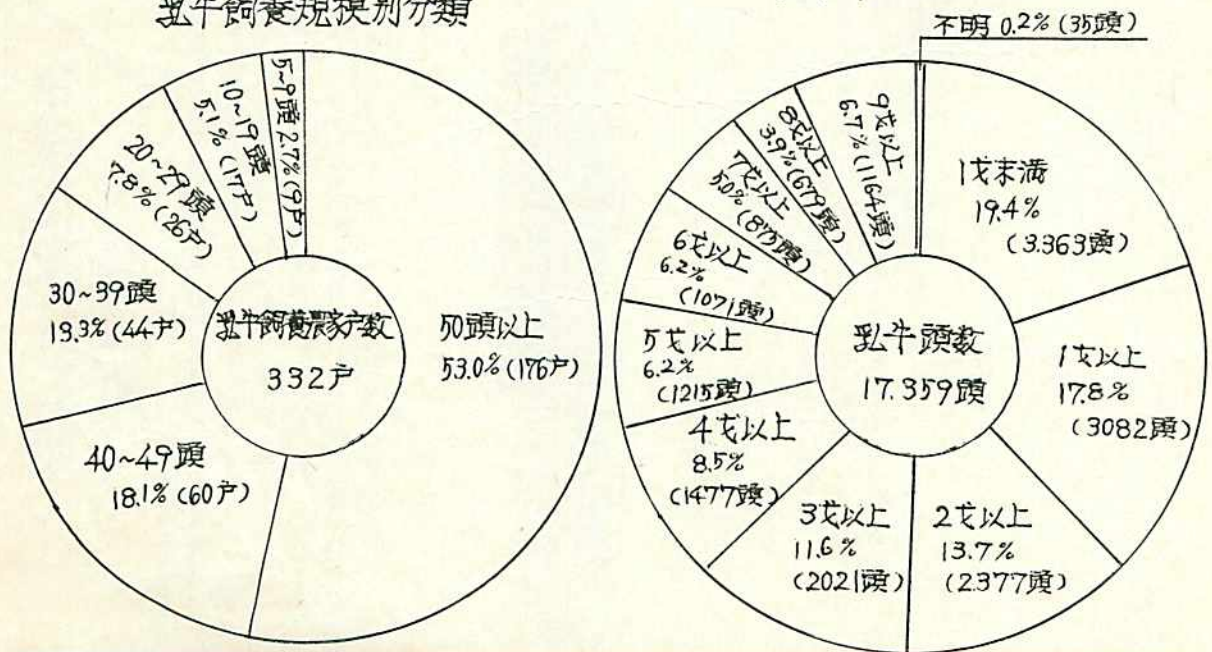 乳牛飼養規模別分類
5~9頭 2.7% (9戸)
10~19頭
5.1% (17戸)
20~29頭
7.8% (26戸)
30~39頭
13.3% (44戸)
40~49頭
18.1% (60戸)
50頭以上
53.0% (176戸)
乳牛飼養農家戸数
332戸
不明 0.2% (35頭)
1才未満
19.4%
(3.363頭)
1才以上
17.8%
(3082頭)
2才以上
13.7%
(2.377頭)
3才以上
11.6%
(2021頭)
4才以上
8.5%
(1477頭)
5才以上
6.2%
(1215頭)
6才以上
6.2%
(1071頭)
7才以上
5.0%
(875頭)
8才以上
3.9% (679頭)
9才以上
6.7% (1164頭)
乳牛頭数
17.359頭